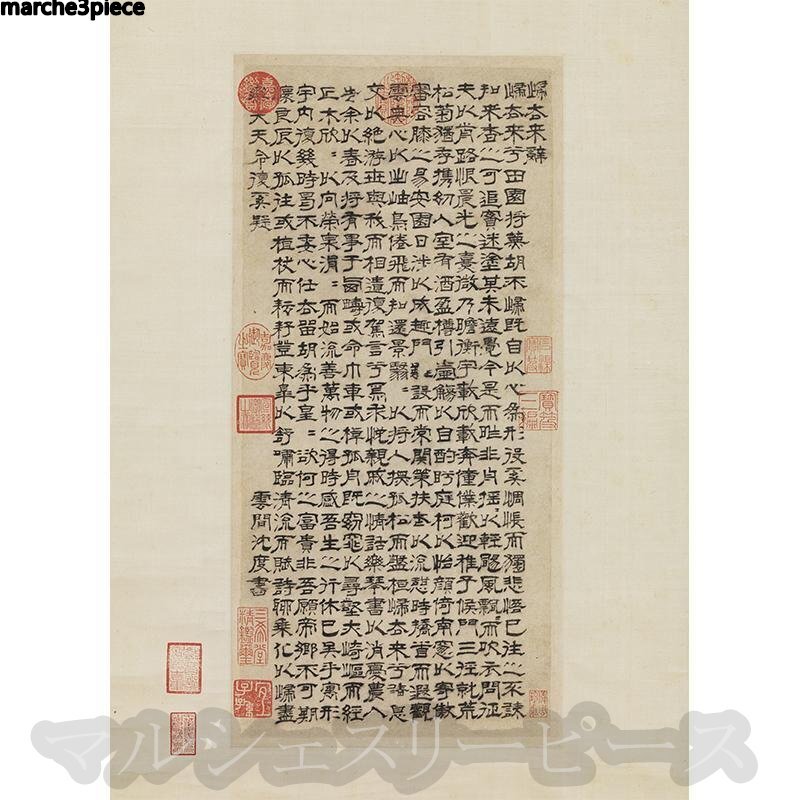 marche3piece
歸去來辭
歸去來兮田園將蕪胡不歸既自以心為形役奚惆悵而獨悲悟已往之不諫
知來者之可追實迷塗其未遠覺今是而昨非舟搖〻以輕颺風飄〻而吹衣問征
夫以前路恨晨光之熹微乃瞻衡宇載欣載奔僮僕歡迎稚子候門三徑就荒
松菊猶存攜幼入室有酒盈樽引壺觴以自酌眄庭柯以怡顏倚南窗以寄傲
審容膝之易安園日涉以成趣門雖設而常關策扶老以流憩時矯首而遐觀
雲無心以出岫鳥倦飛而知還景翳〻以將入撫孤松而盤桓歸去來兮請息
交以絕游世與我而相遺復駕言兮焉求悅親戚之情話樂琴書以消憂農人
告余以春及將有事于西疇或命巾車或棹孤舟既窈窕以尋壑亦崎嶇而經
丘木欣〻以向榮泉涓〻而始流善萬物之得時感吾生之行休已矣乎寓形
宇內復幾時曷不委心任去留胡為乎皇〻欲何之富貴非吾願帝鄉不可期
懷良辰以孤往或植杖而耘耔登東皋以舒嘯臨清流而賦詩聊乘化以歸盡
樂夫天命復奚疑
雲間沈度書
嘉慶御覽之寶
三希堂精鑑璽
宜子孫
マルシェスリーピース